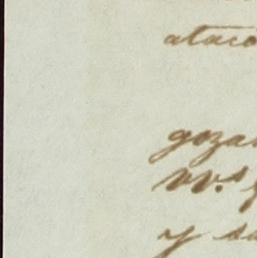 ataco
goza
VV.s
y sa